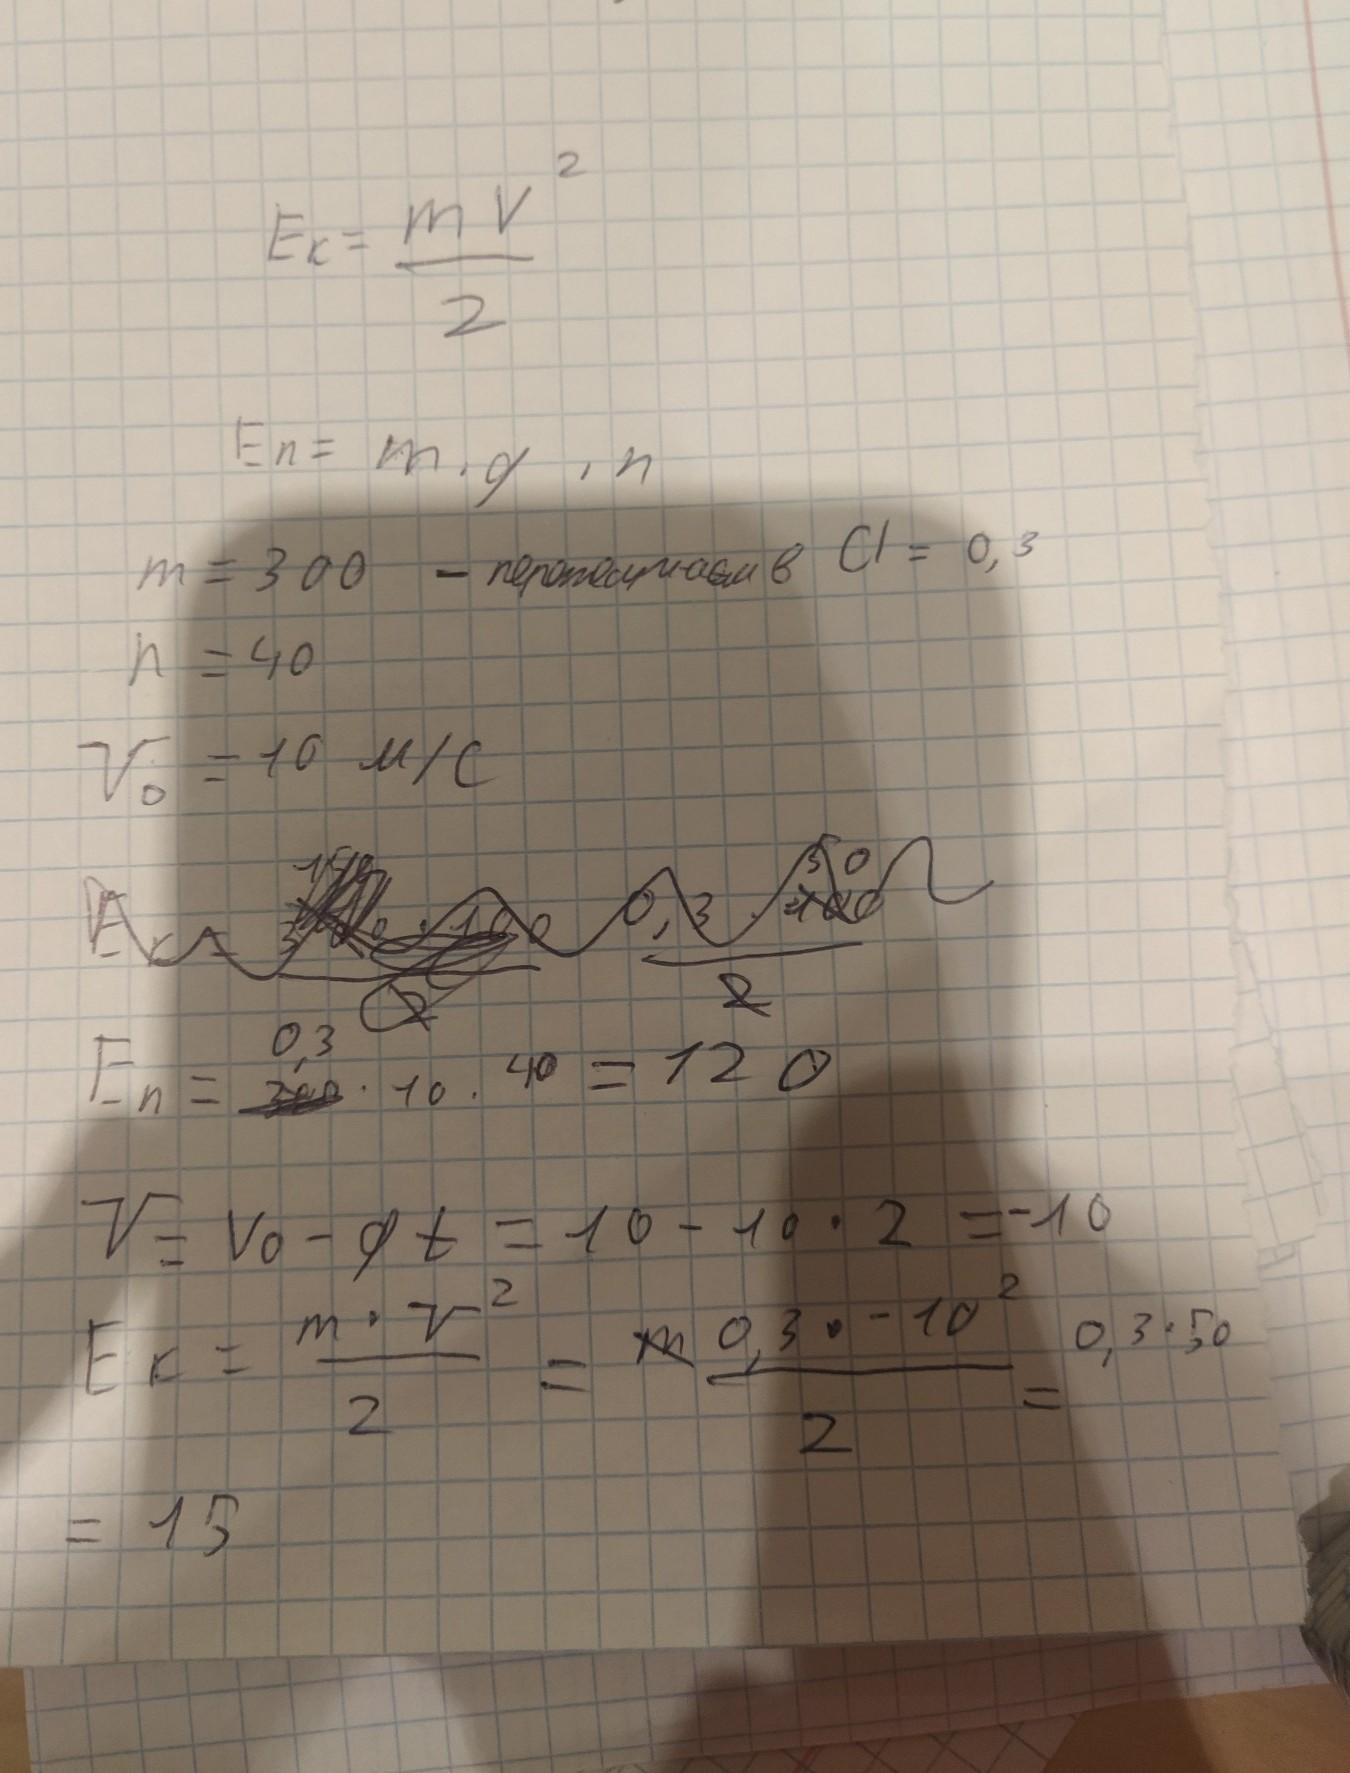 Eк = mv²/2
Eп = m · g · h
m = 300 - переводим в СИ = 0,3
h = 40
V₀ = 10 м/с
Eк = 0,3 · 50 / 2
Eп = 0,3 · 10 · 40 = 120
V = V₀ - gt = 10 - 10 · 2 = -10
Eк = m · V²/2 = 0,3 · -10²/2 = 0,3 · 50
= 15